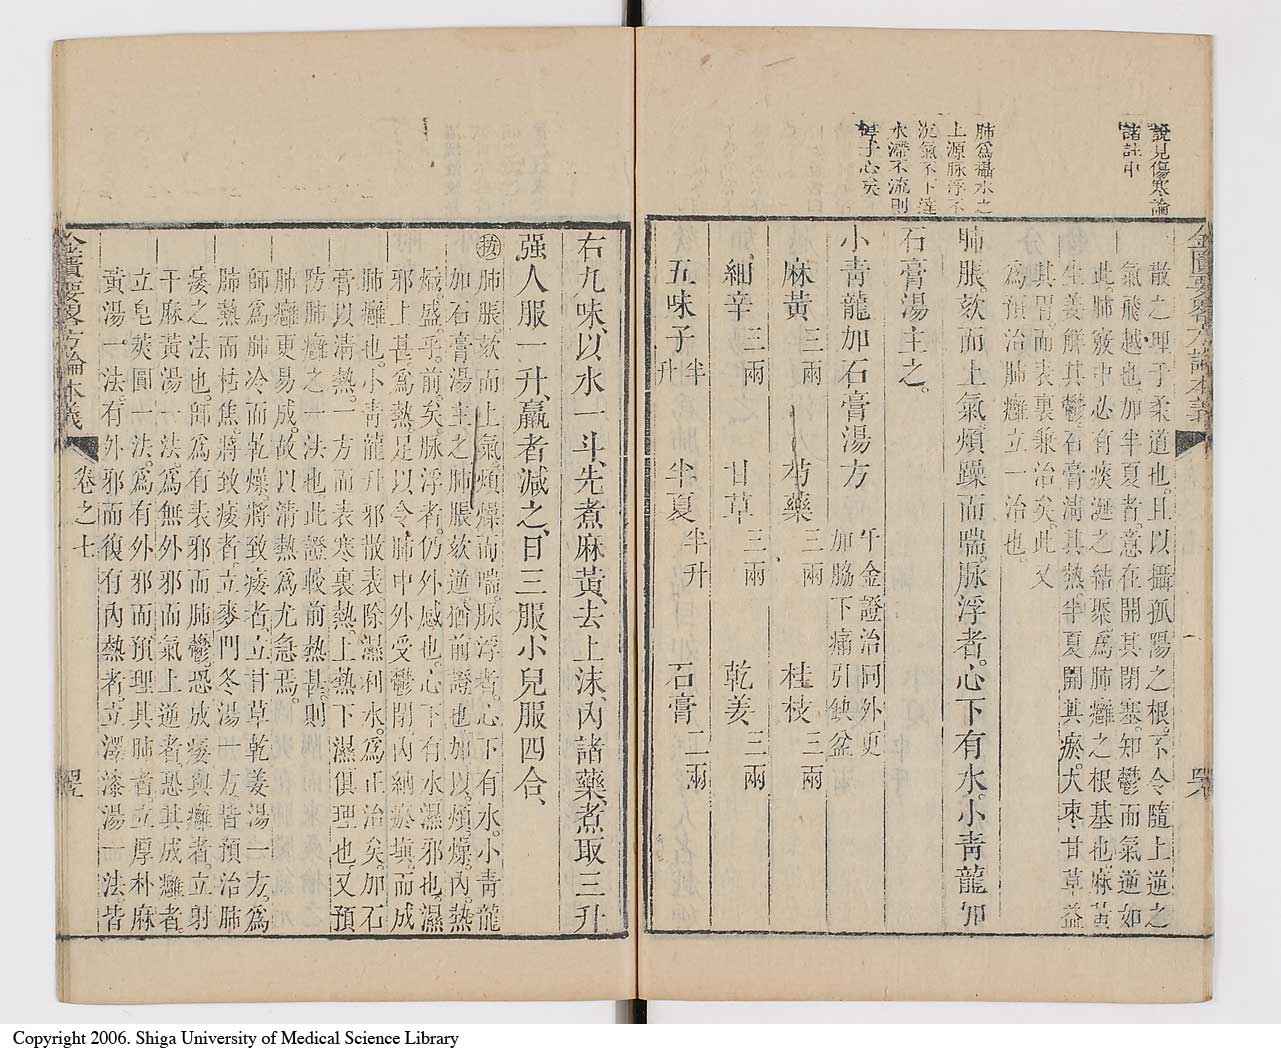 說見傷寒論
諸註中
肺爲攝水之
上源脉浮不
沉氣不下達
水滯不流則
淳于心矣
金匱要畧方論本義
散之理于柔道也。且以攝孤陽之根。不令隨上逆之
氣飛越也。加半夏者。意在開其閉塞。知鬱而氣逆如
此。肺竅中必有痰涎之結聚。爲肺癰之根基也。麻黃
生姜解其鬱。石膏淸其熱。半夏開其瘀。大枣甘草益
其胃。而表裏兼治矣。此又
爲預治肺癰立一治也。
肺脹。欬而上氣。煩躁而喘。脉浮者。心下有水。小靑龍加
石膏湯主之。
小靑龍加石膏湯方 千金證治同外更
加脇下痛引缺盆
麻黃三兩 芍藥三兩 桂枝三兩
細辛三兩 甘草三兩 乾姜三兩
五味子半升 半夏半升 石膏二兩
右九味、以水一斗、先煮麻黃、去上沫、內諸藥、煮取三升
强人服一升、羸者減之、日三服、小兒服四合、
肺脹欬而上氣。煩燥而喘。脉浮者。心下有水。小靑龍
加石膏湯主之。肺脹欬逆。猶前證也。加以煩燥。內熱
熾盛乎。前矣。脉浮者。仍外感也。心下有水濕邪也。濕
邪上甚爲熱。足以令肺中外受鬱閉。內納瘀塡。而成
肺癰也。小靑龍升邪散表除濕利水。爲正治矣。加石
膏以淸熱。一方而表寒裏熱。上熱下濕俱理也。又預
防肺癰之一法也。此證較前熱甚。則
肺癰更易成。故以淸熱爲尤急焉。
師爲肺冷而乾燥。將致痿者。立甘草乾姜湯一方。爲
肺熱而枯焦將致痿者。立麥門冬湯一方。皆預治肺
痿之法也。師爲有表邪而肺鬱。恐成痿與癰者。立射
干麻黃湯一法。爲無外邪而氣上逆者。恐其成癰者。
立皂莢圓一法。爲有外邪而預理其肺者。立厚朴麻
黃湯一法。有外邪而復有內熱者。立澤漆湯一法。皆
金匱要畧方論本義
卷之七